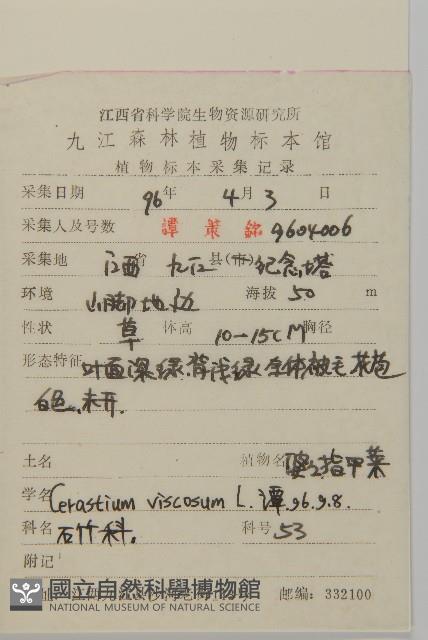 江西省科学院生物资源研究所
九江森林植物标本馆
植物标本采集记录
采集日期 96年 4月 3 日
采集人及号数 譚策銘 9604006
采集地 江西省 九江 县(市) 纪念塔
环境 山脚地边 海拔 50 m
性状 草 体高 10—15CM 胸径
形态特征 叶面深绿.背浅绿.全体被毛.花苞
白色,未开.
土名 植物名 婆婆指甲菜
学名 Cerastium viscosum L. 譚.96.9.8.
科名 石竹科. 科号 53
附记
國立自然科學博物館
NATIONAL MUSEUM OF NATURAL SCIENCE
邮编:332100